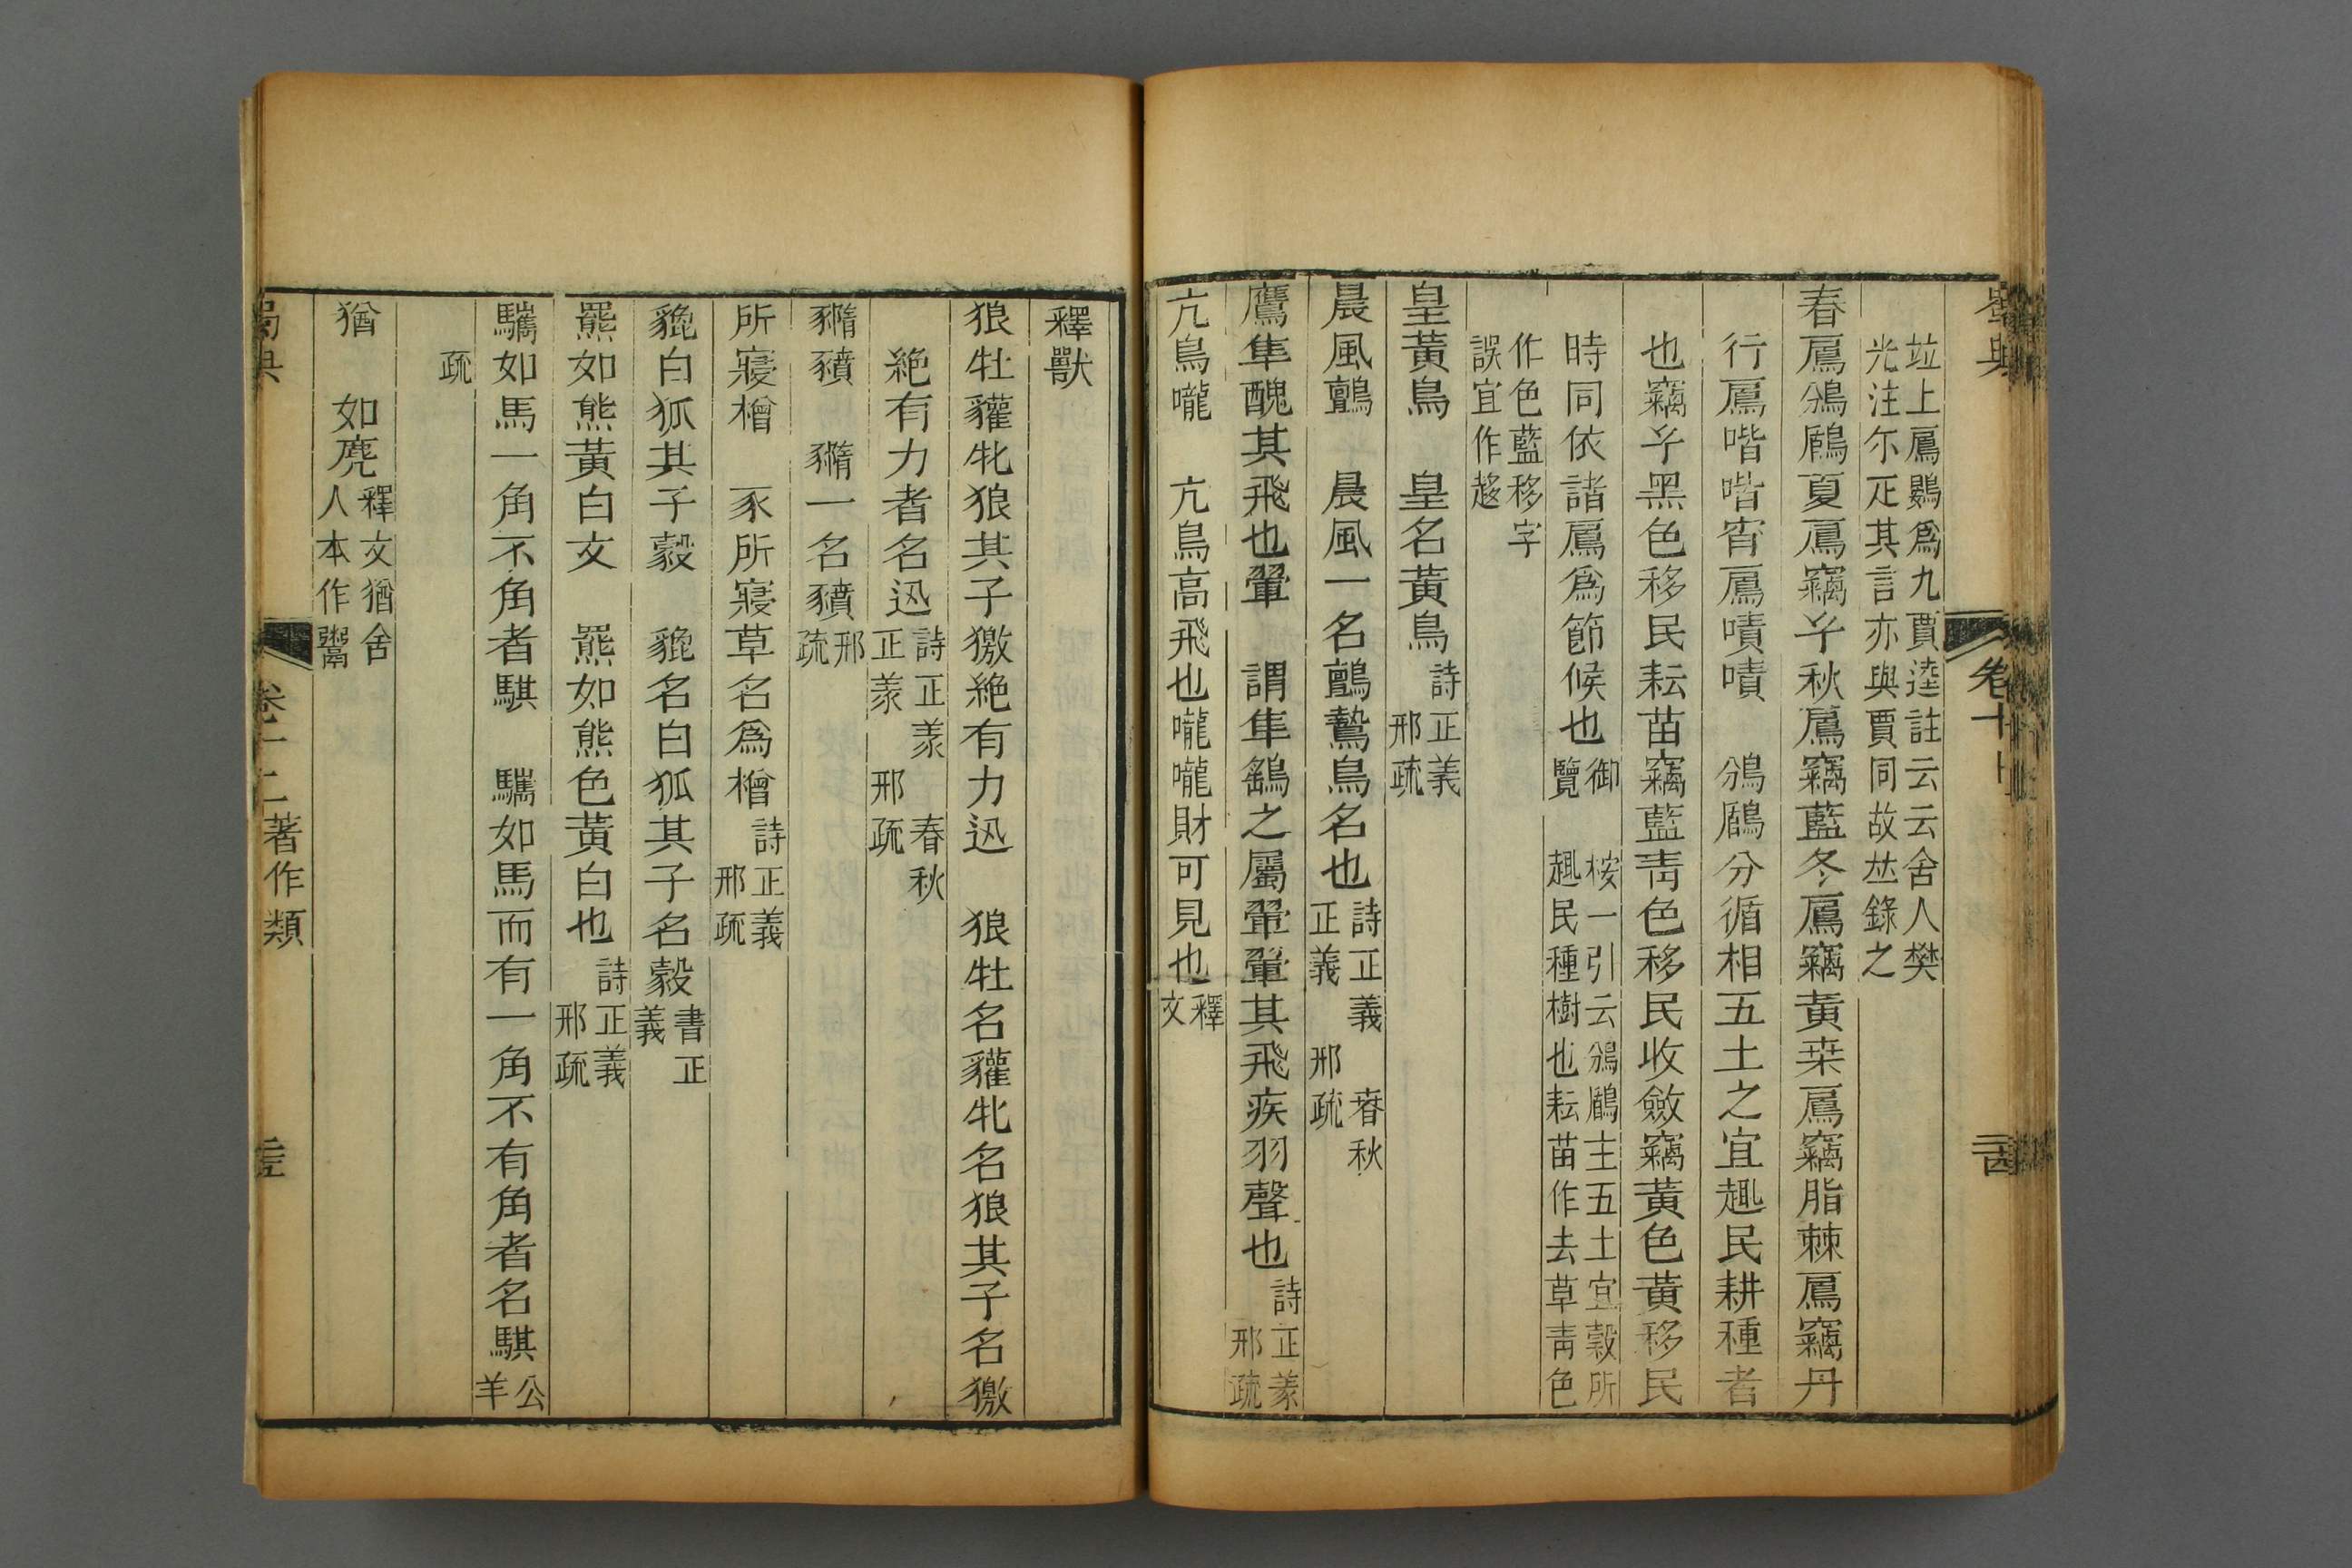 蜀典
卷十
二十四
竝上鳸鷃爲九賈逵註云云舍人樊
光注尓疋其言亦與賈同故𠀤錄之
春鳸鳻鶞夏鳸竊𤣥秋鳸竊藍冬鳸竊黃桒鳸竊脂棘鳸竊丹
行鳸唶唶宵鳸嘖嘖　鳻鶞分循相五土之宜趣民耕種者
也竊𤣥黑色移民耘苗竊藍靑色移民收斂竊黃色黃移民
時同依諸鳸爲節候也御覽　桉一引云鳻鶞主五土宜穀所
趣民種樹也耘苗作去草靑色
作色藍移字
誤宜作趍
皇黃鳥　皇名黃鳥詩正義邢疏
晨風鸇　晨風一名鸇鷙鳥名也詩正義　春秋正義　邢疏
鷹隼醜其飛也翬　謂隼鷂之屬翬翬其飛疾羽聲也詩正義邢疏
亢鳥嚨　亢鳥高飛也嚨嚨財可見也釋文
釋獸
狼牡貛牝狼其子獥絶有力迅　狼牡名貛牝名狼其子名獥
絶有力者名迅詩正義　春秋正義　邢疏
豶豬　豬一名豶邢疏
所寢橧　豕所寢草名爲橧詩正義邢疏
貔白狐其子豰　貔名白狐其子名豰書正義
羆如熊黃白文　羆如熊色黃白也詩正義邢疏
驨如馬一角不角者騏　驨如馬而有一角不有角者名騏公羊
疏
猶　如麂釋文猶舍人本作鬻
蜀典
卷十二著作類
二十五